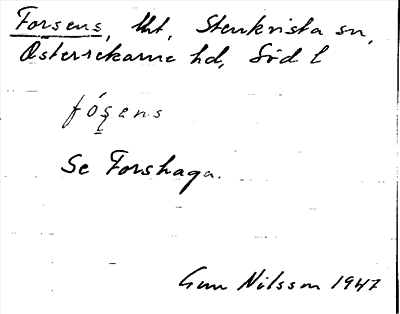 Forsens, lht, Stenkvista sn,
Österrekarne hd, Söd l
fó̱s̨ens
Se Forshaga.
Gun Nilsson 1947